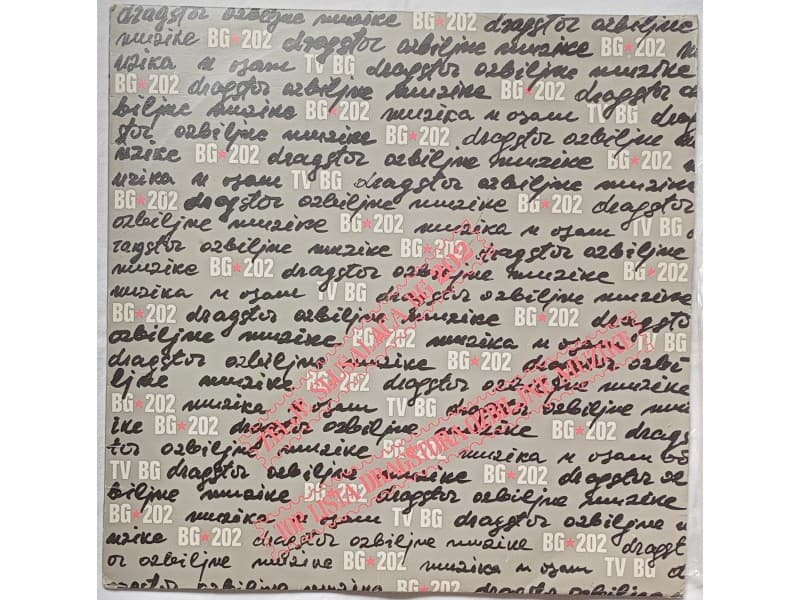 dragstor ozbiljne muzike BG*202 dragstor ozbiljne
muzike BG*202 dragstor ozbiljne muzike BG*202 m
uzika u osam TV BG dragstor ozbiljne muzike
BG*202 dragstor ozbiljne muzike BG*202 dragstor oz
biljne muzike BG*202 muzika u osam TV BG drag
stor ozbiljne muzike BG*202 dragstor ozbiljne m
uzike BG*202 dragstor ozbiljne muzike BG*202 m
uzika u osam TV BG dragstor ozbiljne muzike
BG*202 dragstor ozbiljne muzike BG*202 dragstor
ozbiljne muzike BG*202 muzika u osam TV BG d
ragstor ozbiljne muzike BG*202 dragstor ozbiljne
muzike BG*202 dragstor ozbiljne muzike BG*202
muzika u osam TV BG dragstor ozbiljne muzike
BG*202 dragstor ozbiljne muzike BG*202 dragsto
r ozbiljne muzike BG*202 muzika u osam TV BG
dragstor ozbiljne muzike BG*202 dragstor ozbi
ljne muzike BG*202 dragstor ozbiljne muzike
BG*202 muzika u osam TV BG dragstor ozbiljne muz
ike BG*202 dragstor ozbiljne muzike BG*202 drags
tor ozbiljne muzike BG*202 muzika u osam
TV BG dragstor ozbiljne muzike BG*202 dragstor oz
biljne muzike BG*202 dragstor ozbiljne muzike
BG*202 muzika u osam TV BG dragstor ozbiljne m
uzike BG*202 dragstor ozbiljne muzike BG*202 dragst
or ozbiljne muzike BG*202 muzika u osam TV BG d
ragstor ozbiljne muzike BG*202 dragstor ozbiljne
SLUŠALACA BG 202
TOP LISTA DRAGSTORA OZBILJNE MUZIKE